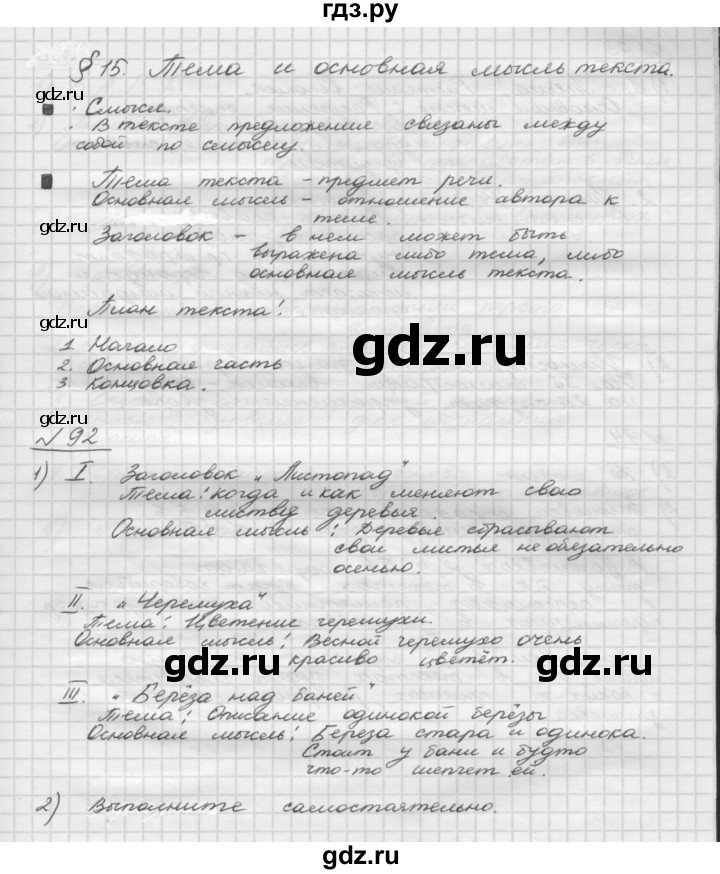 гдз.ру
§ 15. Тема и основная мысль текста.
gdz.ru
· Смысл.
· В тексте предложения связаны между
собой по смыслу.
Тема текста – предмет речи.
Основная мысль – отношение автора к
теме.
gdz.ru
Заголовок – в нем может быть
выражена либо тема, либо
основная мысль текста.
План текста:
gdz.ru
1. Начало
2. Основная часть
3. Концовка.
gdz.ru
gdz.ru
№ 92
1) I. Заголовок „Листопад"
Тема: когда и как меняют свою
листву деревья.
Основная мысль: Деревья сбрасывают
свои листья не обязательно
осенью.
gdz.ru
II. „Черемуха"
Тема: Цветение черемухи.
Основная мысль: Весной черемуха очень
красиво цветёт.
gdz.ru
gdz.ru
III. „Берёза над баней"
Тема: Описание одинокой берёзы
Основная мысль: Береза стара и одинока.
Стоит у бани и будто
что-то шепчет ей.
gdz.ru
2) Выполните самостоятельно.
gdz.ru
gdz.ru